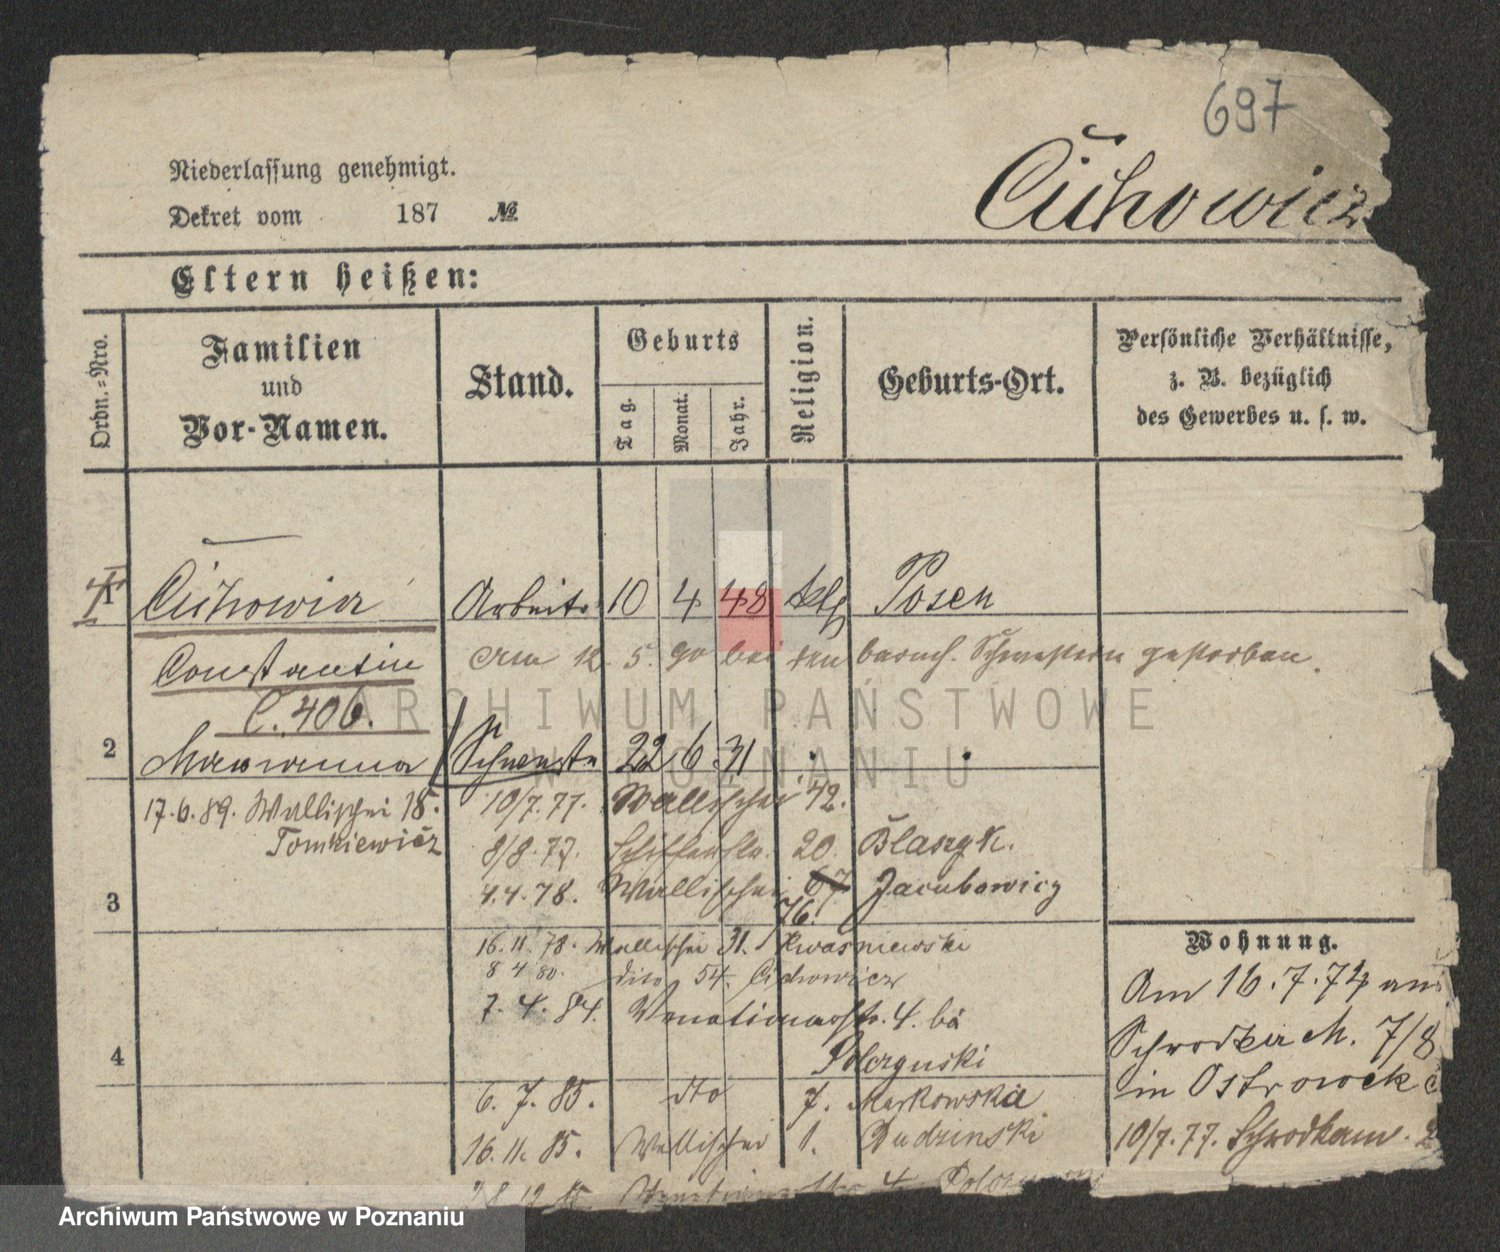 697
Niederlassung genehmigt.
Cichowicz
Dekret vom 187 №
Eltern heißen:
Ordn.-Nro.
Familien und Vor-Namen.
Stand.
Geburts
Tag.
Monat.
Jahr.
Religion.
Geburts-Ort.
Persönliche Verhältnisse, z. B. bezüglich des Gewerbes u. s. w.
1 Cichowicz Arbeiter 10 4 48 kth Posen
Constantin Am 12. 5. 90 bei den barmh. Schwestern gestorben.
C. 406.
ARCHIWUM PAŃSTWOWE
W POZNANIU
2 Maryanna Schwester 22 6 31
17.6.89. Wallischei 18. 10/7.77. Wallischei 42.
Tomkiewicz 8/8.77. Schifferstr. 20. Blaszyk.
3 4.4.78. Wallischei 67 Jacubowicz
76.
16.11.78. Wallischei 31. Kwasniewski
Wohnung.
8 4 80. dito 54. Cichowicz
Am 16.7.74 aus
7.4.84. Venetianerstr. 4. bei
Schrodka M. 7/8
4 Polczynski
in Ostrowek
6.7.85. dto 7. Markowska
16.11.85. Wallischei 1. Dudzinski
10/7.77. Schrodkam.
28.12.85 Venetianerstr. 4
Archiwum Państwowe w Poznaniu